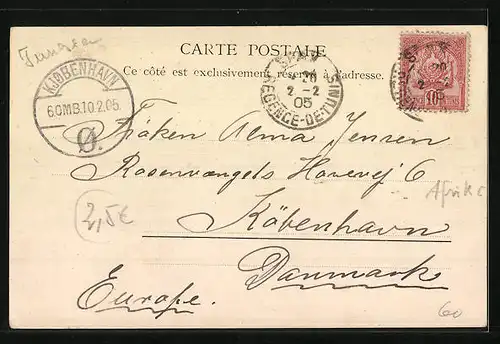 CARTE POSTALE
Ce côté est exclusivement réservé à l'adresse.
KJØBENHAVN
6.OMB.10.2.05.
Ø.
20
2 -2
05
REGENCE-DE-TUNIS
10
Frøken Alma Jensen
Rosenvængets Hovevej 6
København
Danmark
Europe.
Afrika
2,5€
60